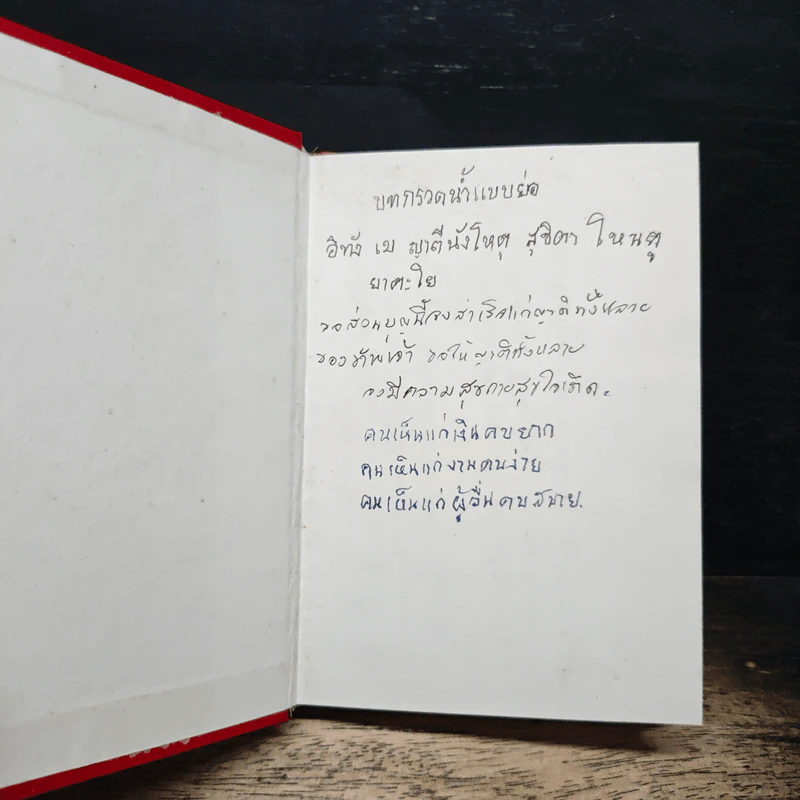 บทกรวดน้ำแบบย่อ
อิทัง เม ญาตีนังโหตุ สุขิตา โหนตุ
ญาตะโย
ขอส่วนบุญนี้จงสำเร็จแก่ญาติทั้งหลาย
ของข้าพเจ้า ขอให้ญาติทั้งหลาย
จงมีความสุขกายสุขใจเถิด.
คนเห็นแก่เงินคบยาก
คนเห็นแก่งานคบง่าย
คนเห็นแก่ผู้อื่นคบสบาย.